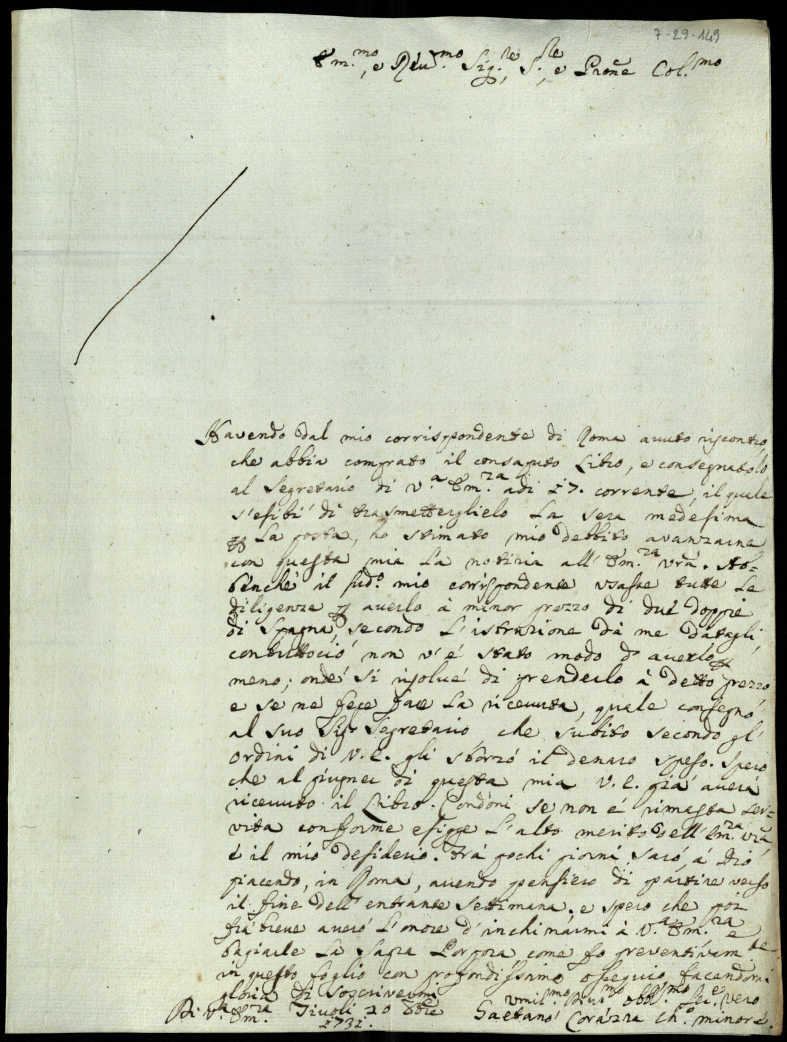 7-29-149
Em.mo, e Rev.mo Sig.re, S.re, e Prone Col.mo
Havendo dal mio corrispondente di Roma auuto riscontro,
che abbia comprato il consaputo Libro, e consegnatolo
al Segretario di V.a Em.za adi 17. corrente, il quale
s'esibì di trasmetterglielo La sera medesima
La posta, ho stimato mio debbito avanzarne
con questa mia La notizia all' Em.za vrã. Ab-
benche il sud.o mio corispondente usasse tutte Le
diligenze auerlo à minor prezzo di due doppie
di Spagna, secondo L'istruzione da me datagli,
contuttociò non v'é stato modo d' auerlo
meno; onde si risolué di prenderlo à detto prezzo
e se ne fece fare La riceuuta, quale consegnò
al suo Sig.r Segretario, che subito secondo gl'
ordini di V. E. gli sborzò il denaro speso. Spero
che al giugner di questa mia V. E. già auerà
riceuuto il Libro. Condoni se non é rimasta ser-
vita conforme esigge L'alto merito dell' Em.za vrã,
é il mio desiderio. Trà pochi giorni sarò, à Dio
piacendo, in Roma, auendo pensiero di partire verso
il fine dell' entrante settimana, e spero che poi
frà breue auerò L'onore d'inchinarmi à V.a Em.za e
bagiarle La Sagra Porpora, come fo preventivam.te
in questo foglio con profondissimo ossequio, facendomi
gloria di soscrivermi
Di V.a Em.za Tivoli 20 Xbre
1731.
vmil.mo Diuo.mo obb.mo Ser.e vero
Gaetano Corazza Ch.o minore.